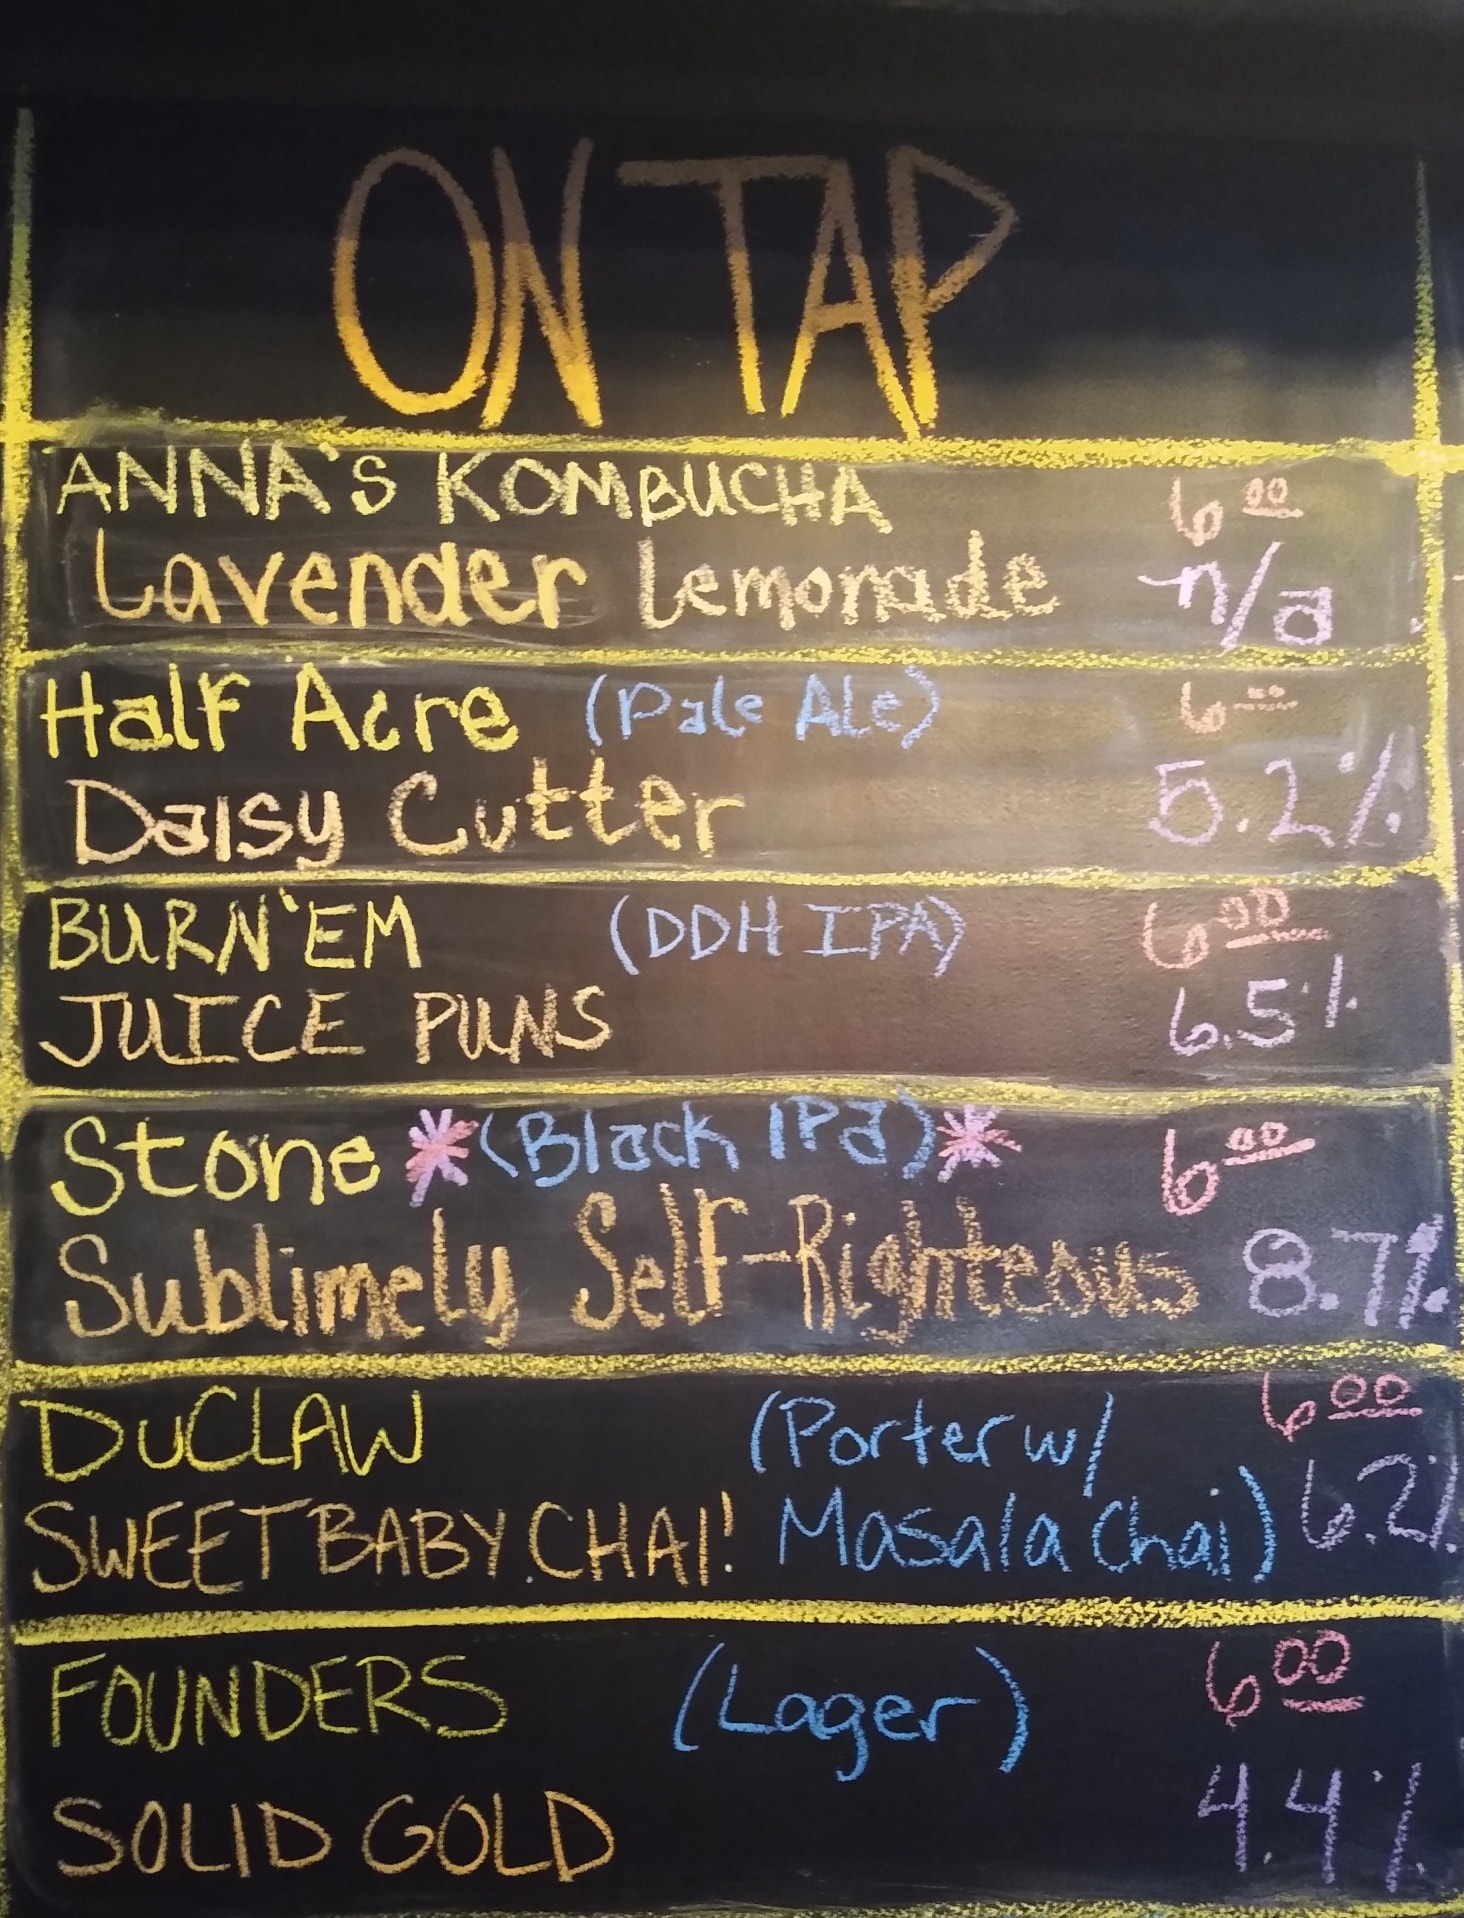 ON TAP
ANNA'S KOMBUCHA 6 00
Lavender Lemonade n/a
Half Acre (Pale Ale) 6 00
Daisy Cutter 5.2%
BURN'EM (DDH IPA) 6 00
JUICE PUNS 6.5%
Stone *(Black IPA)* 6 00
Sublimely Self-Righteous 8.7%
DuCLAW (Porter w/ 6 00
SWEET BABY CHAI! Masala Chai) 6.2%
FOUNDERS (Lager) 6 00
SOLID GOLD 4.4%